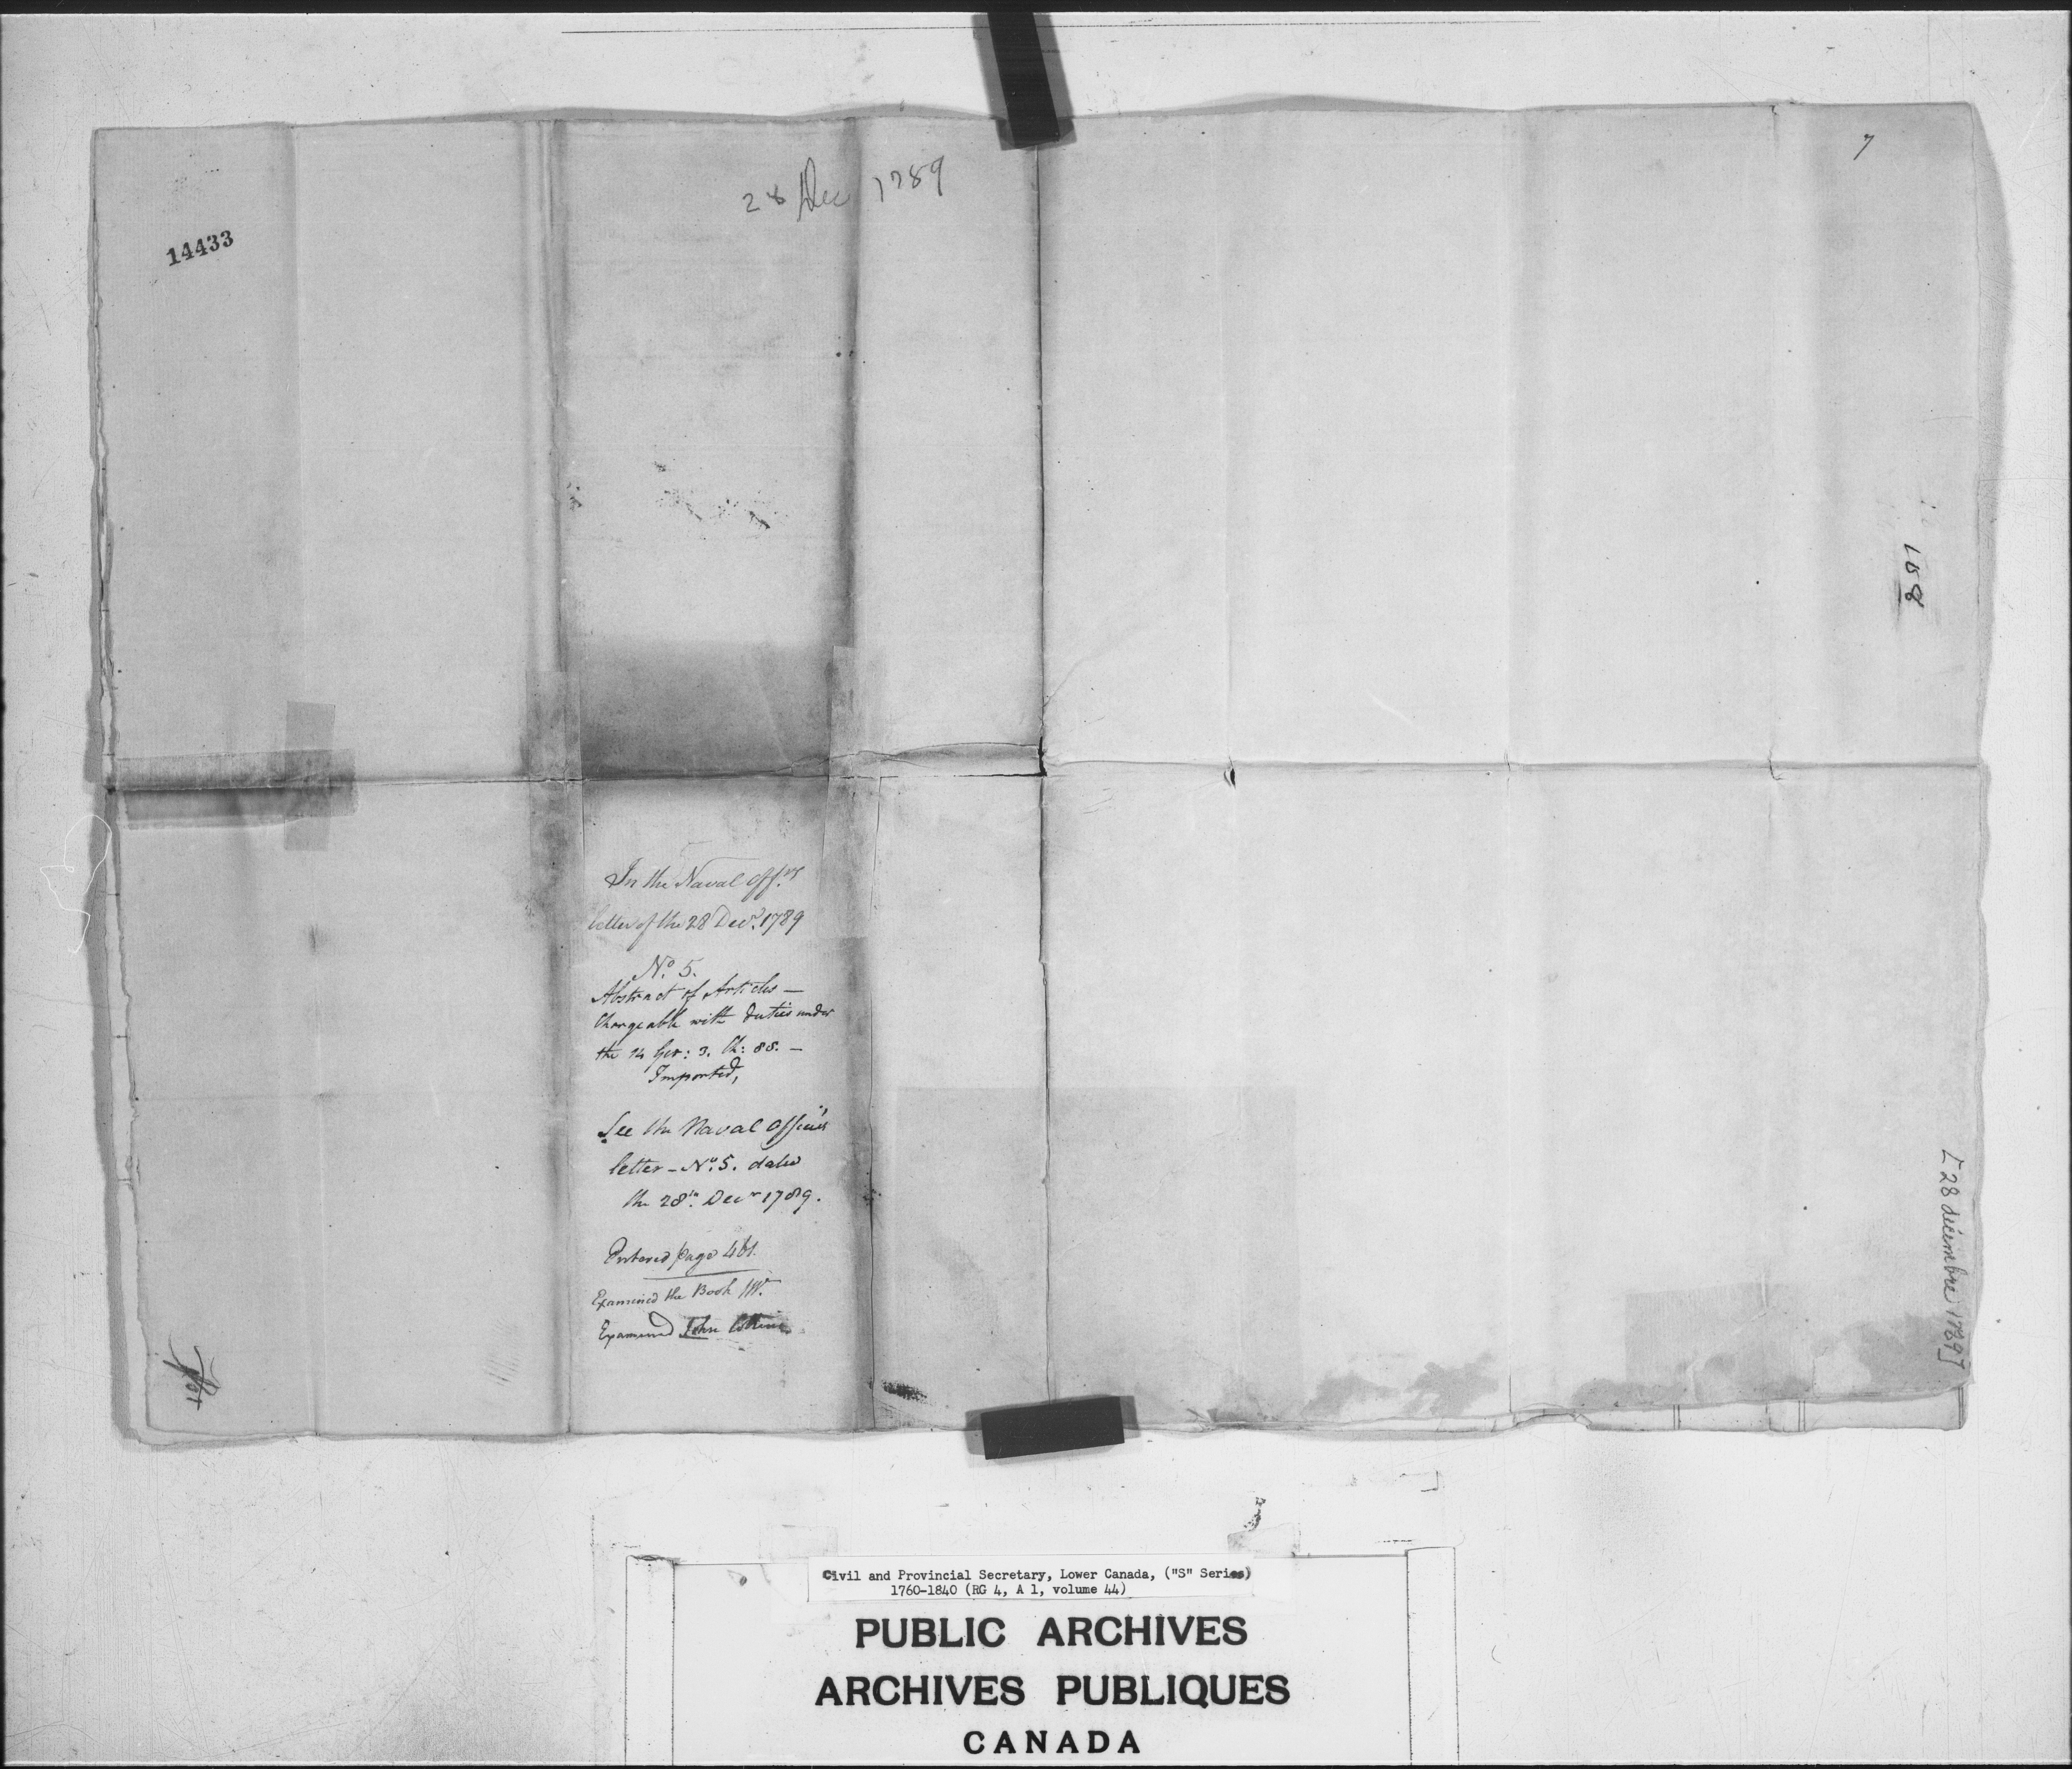 28 Dec 1789
7
14433
188
In the Naval Offrs
letter of the 28 Decr. 1789
No. 5.
Abstract of Articles —
Chargeable with duties under
the 14 Geo: 3. Ch: 88. —
Imported,
See the Naval Officer's
letter - No. 5. dated
the 28th. Decr 1789.
Entered page 461.
Examined the Book
Examined John Collins
[28 décembre 1789]
Civil and Provincial Secretary, Lower Canada, ("S" Series)
1760-1840 (RG 4, A 1, volume 44)
PUBLIC ARCHIVES
ARCHIVES PUBLIQUES
CANADA